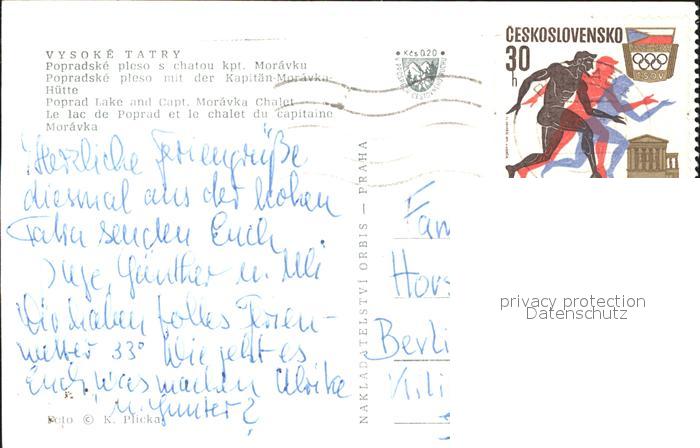 VYSOKÉ TATRY
Popradské pleso s chatou kpt. Morávku
Popradské pleso mit der Kapitän-Morávka-
Hütte
Poprad Lake and Capt. Morávka Chalet
Le lac de Poprad et le chalet du capitaine
Morávka
Kčs 0,20
ČESKOSLOVENSKO
30
h
ČSOV
Herzliche Feriengrüße
diesmal aus der hohen
Tatra senden Euch
Inge, Günther u. Uli
Wir haben tolles Ferien-
wetter 33° Wie geht es
Euch, was machen Ulrike
u. Gunter?
Foto © K. Plicka
NAKLADATELSTVÍ ORBIS — PRAHA
Fam
Hors
Berli
privacy protection
Datenschutz